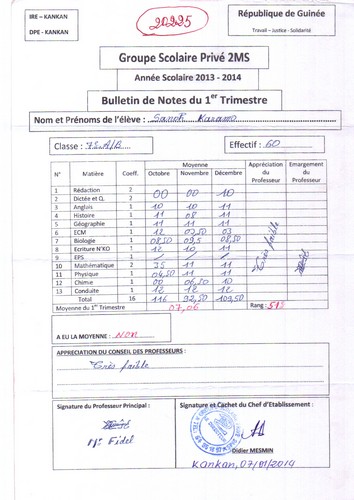 IRE – KANKAN
DPE - KANKAN
20225
République de Guinée
Travail – Justice - Solidarité
Groupe Scolaire Privé 2MS
Année Scolaire 2013 - 2014
Bulletin de Notes du 1er Trimestre
Nom et Prénoms de l'élève : Sanoh Karamo
Classe : 7è A/B Effectif : 60
N° Matière Coeff. Moyenne Appréciation du Professeur Emargement du Professeur
Octobre Novembre Décembre
1 Rédaction 2 00 00 10
2 Dictée et Q. 2
3 Anglais 1 10 10 11
4 Histoire 1 11 08 11
5 Géographie 1 11 11 11
6 ECM 1 12 03
7 Biologie 1 08,50 09,5 08,50
8 Ecriture N'KO 1 12 10 11
9 EPS 1
10 Mathématique 2 11 11
11 Physique 1 04,50 11 11
12 Chime 1 00 06,50 10
13 Conduite 1 12 12 12
Total 16 116 92,50 109,50
Très faible
Moyenne du 1er Trimestre 07,06 Rang :
A EU LA MOYENNE : NON
APPRECIATION DU CONSEIL DES PROFESSEURS :
Très faible
Signature du Professeur Principal :
Mr Fidel
Signature et Cachet du Chef d'Etablissement :
Didier MESMIN
Kankan, 07/01/2014